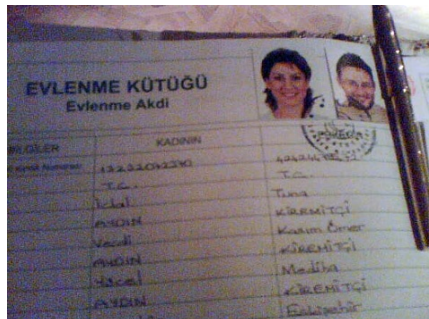 EVLENME KÜTÜĞÜ
Evlenme Akdi
BİLGİLER KADININ
Kimlik Numarası
T.C. T.C.
İclal Tuna
AYDIN KİREMİTÇİ
Vecdi Kasım Ömer
AYDIN KİREMİTÇİ
Yücel Mediha
AYDIN KİREMİTÇİ
Eskişehir